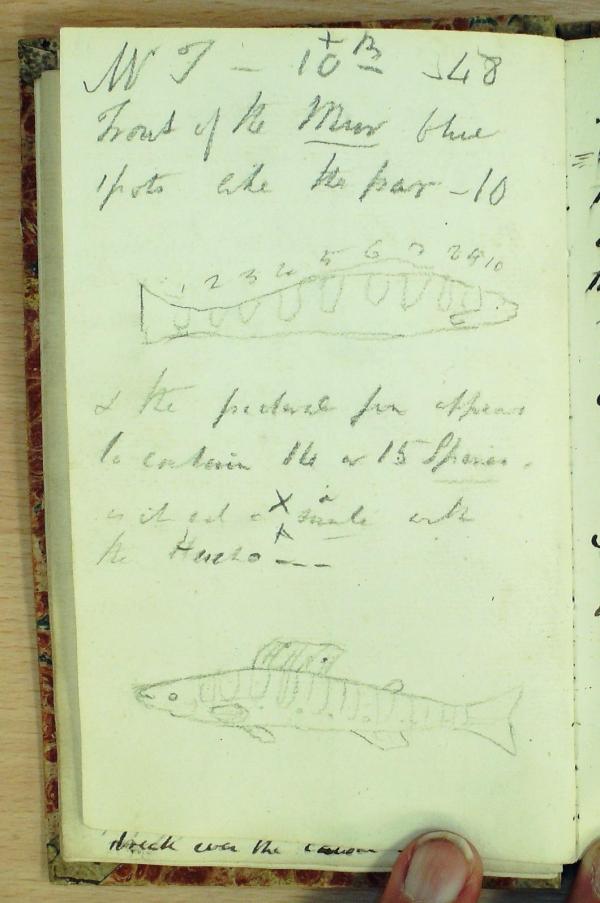 10 B 48
Trout of the Mur blue
spots like the par – 10
1 2 3 4 5 6 7 8 9 10
& the pectoral fin appears
to contain 14 or 15 Spines.
is it not a X with
the Hucho – –
over the